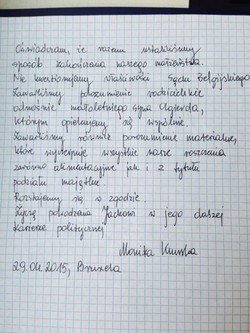 Oświadczam, że razem ustaliliśmy
sposób zakończenia naszego małżeństwa.
Nie kwestionujemy właściwości Sądu Belgijskiego.
Zawarliśmy porozumienie rodzicielskie
odnośnie małoletniego syna
którym opiekujemy się wspólnie.
Zawarliśmy również porozumienie materialne,
które wyczerpuje wszystkie nasze roszczenia
zarówno alimentacyjne jak i z tytułu
podziału majątku.
Rozstajemy się w zgodzie.
Życzę powodzenia Jackowi w jego dalszej
karierze politycznej
Monika
29.04.2015, Bruksela